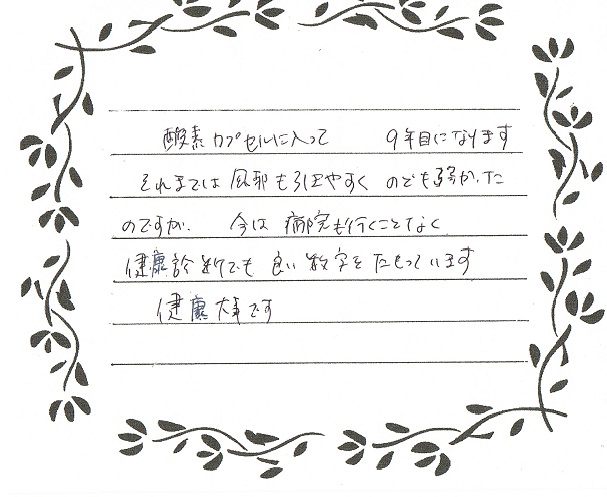 酸素カプセルに入って　9年目になります
それまでは 風邪も引きやすく のども弱かった
のですが、 今は 病院も行くことなく
健康診断でも 良い数字を たもっています
健康大事です